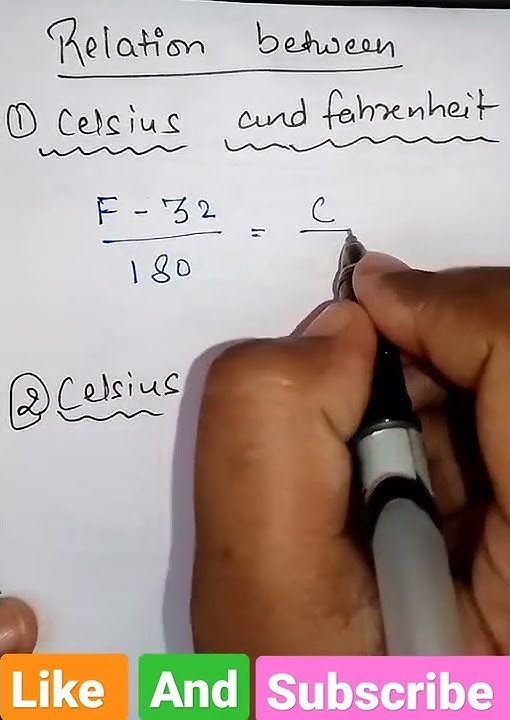 Relation between
① Celsius and fahrenheit
F - 32 = C
180
② Celsius
Like And Subscribe